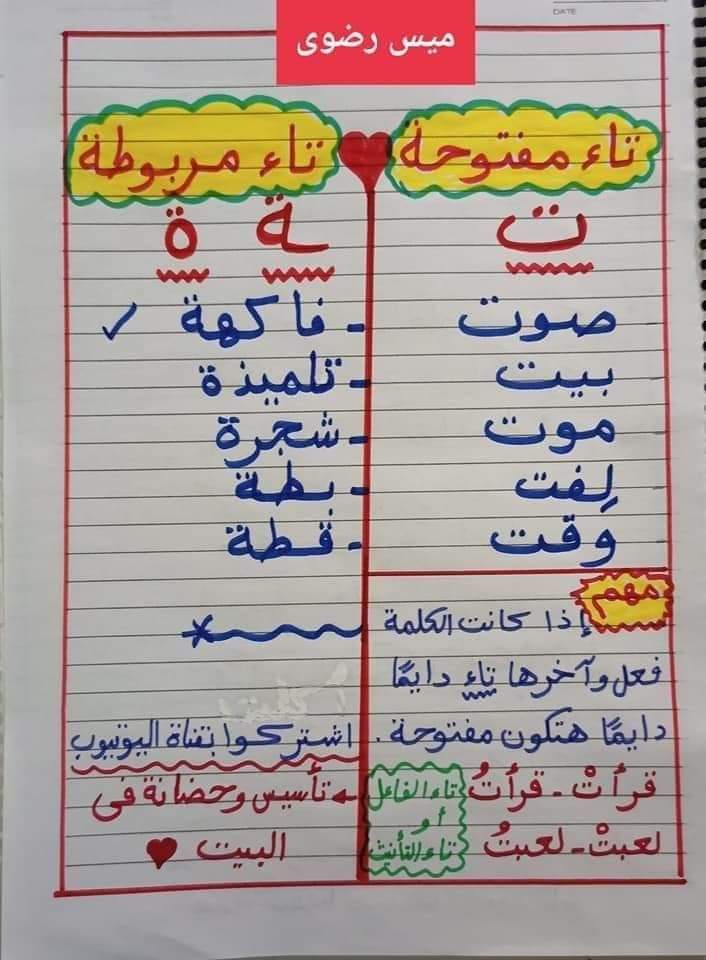 DATE
ميس رضوى
تاء مفتوحة
ت
صوت
بيت
موت
لِفت
وَقت
مهم
إذا كانت الكلمة
فعل وآخرها تاء دايمًا
دايمًا هتكون مفتوحة.
قرأتْ - قرأتُ
لعبتْ - لعبتُ
تاء الفاعل
أو
تاء التأنيث
تاء مربوطة
ـة ة
- فاكهة ✓
- تلميذة
- شجرة
- بطة
- قطة
اشتركوا بقناة اليوتيوب
تأسيس وحضانة فى
البيت ♥